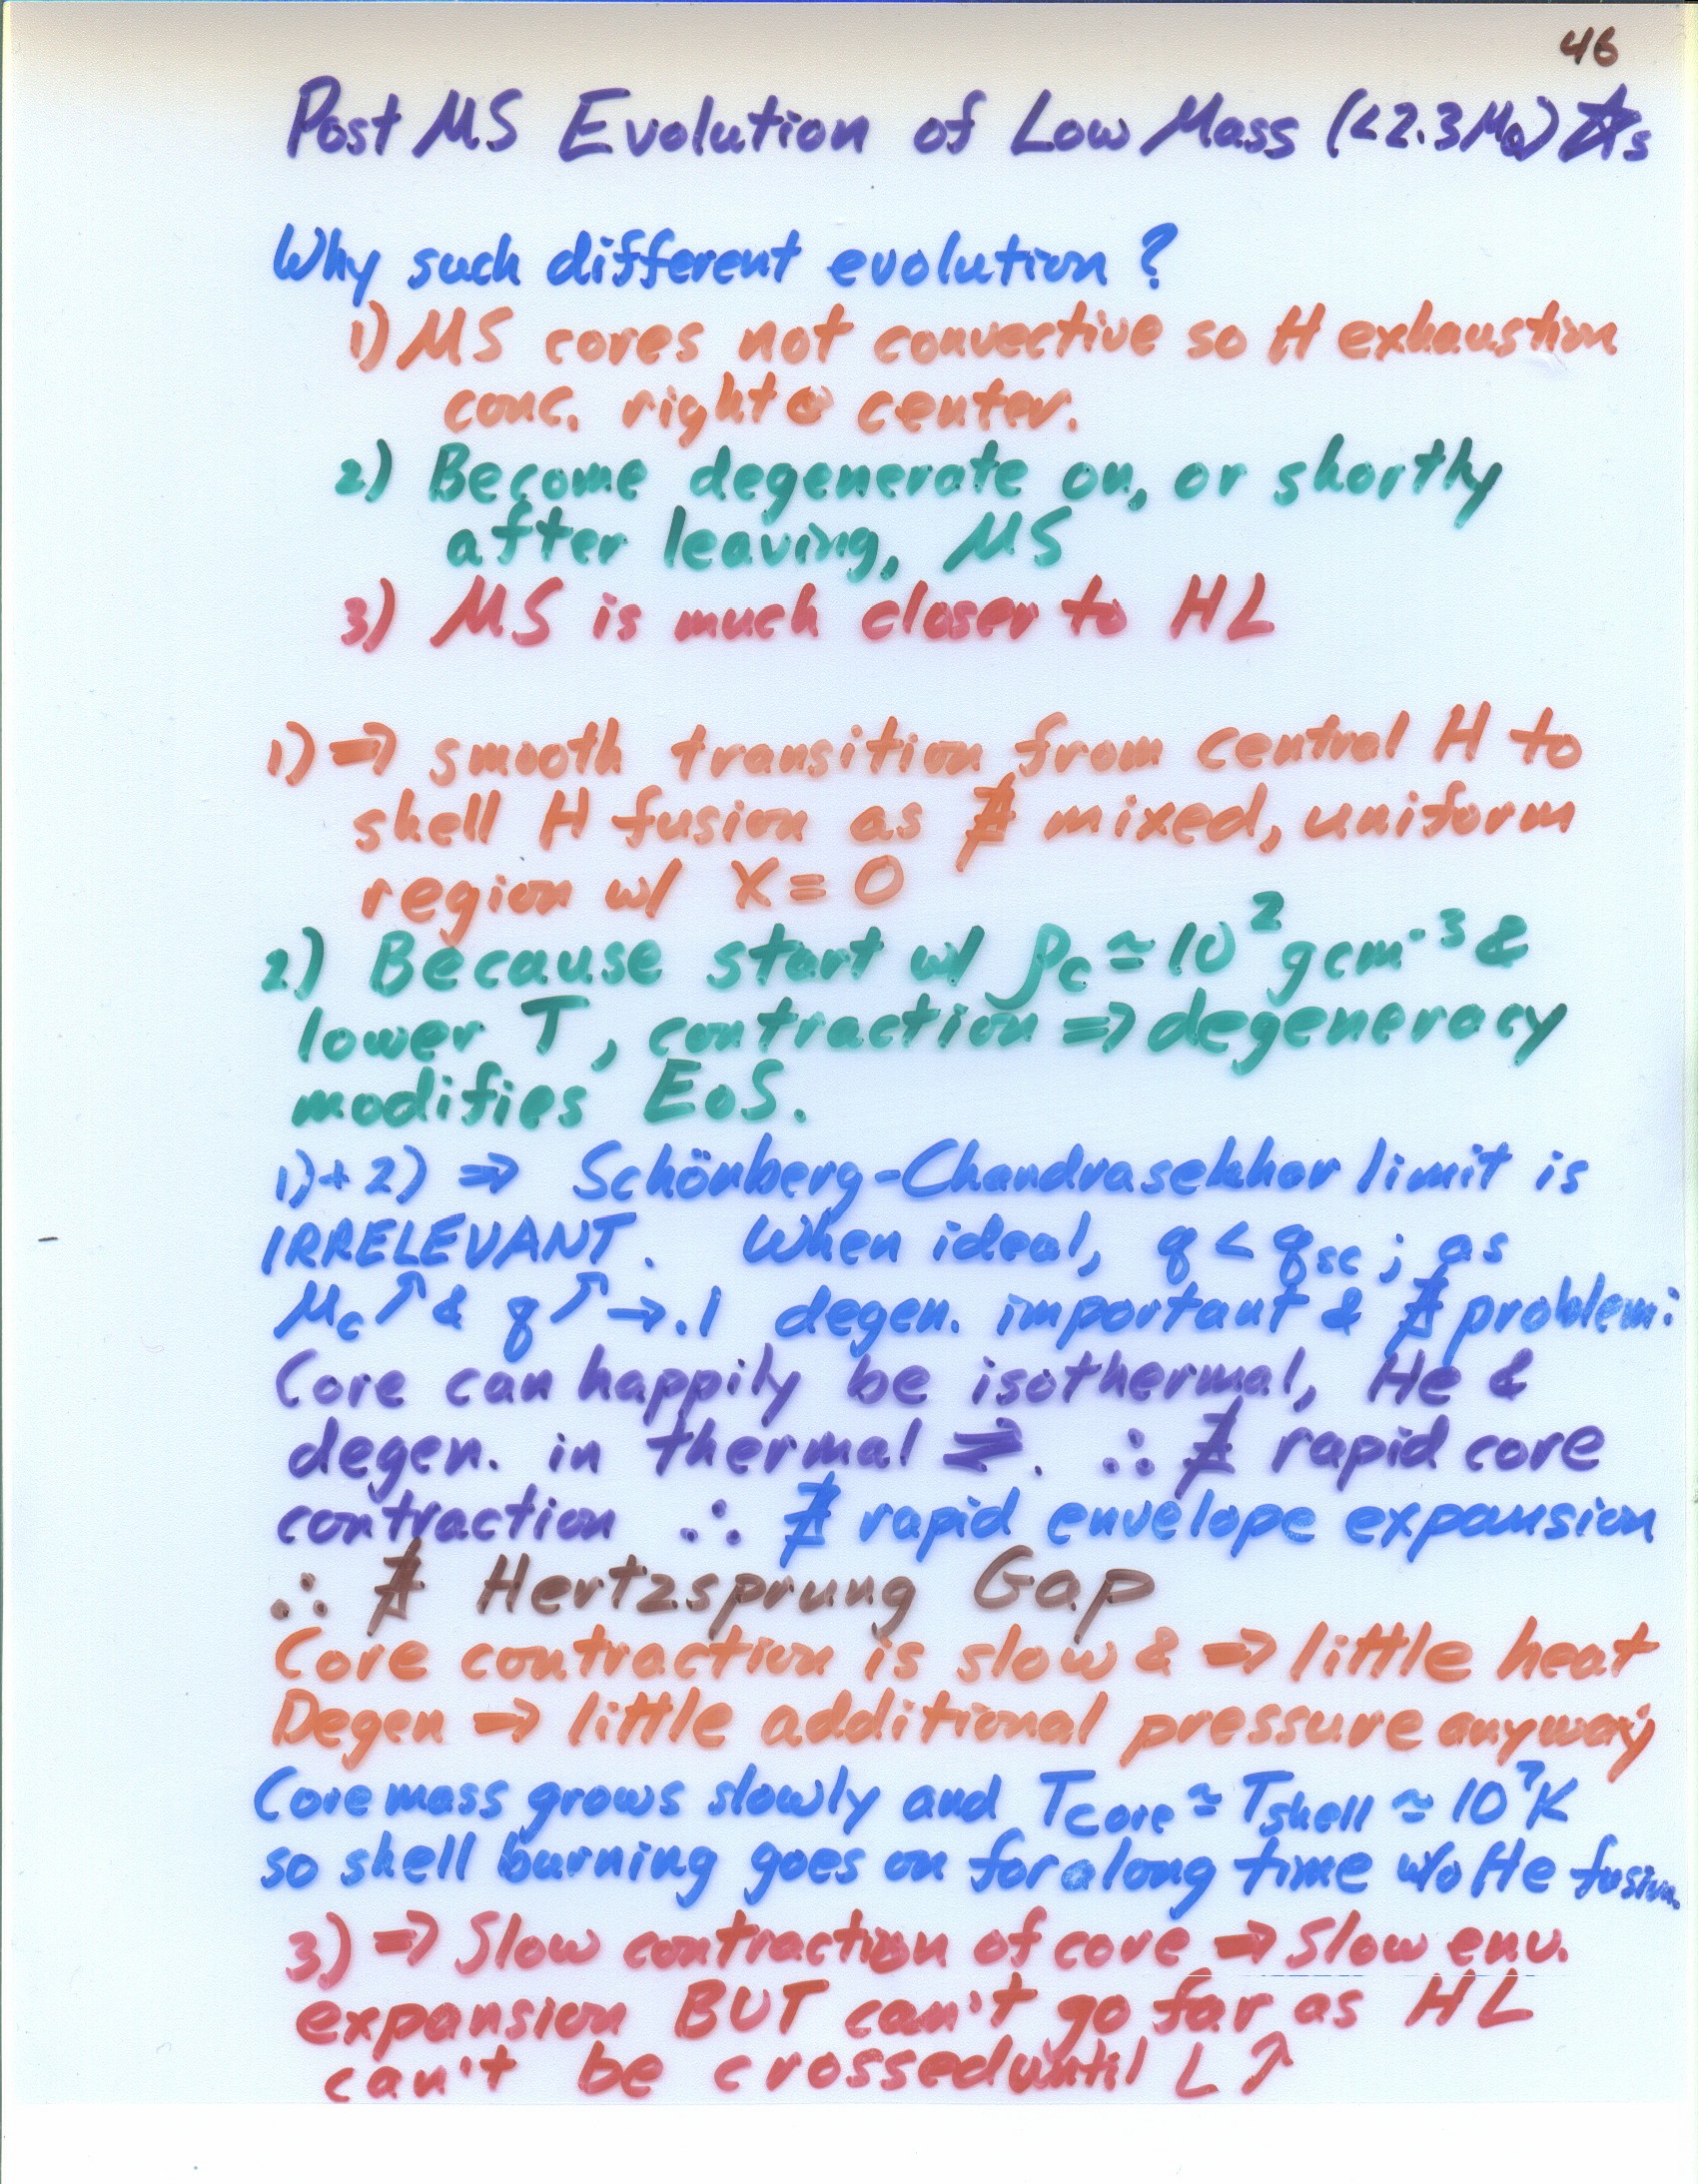 46
Post MS Evolution of Low Mass (<2.3M☉) ☆s
Why such different evolution?
1) MS cores not convective so H exhaustion
conc. right @ center.
2) Become degenerate on, or shortly
after leaving, MS
3) MS is much closer to HL
1) ⇒ smooth transition from central H to
shell H fusion as ∄ mixed, uniform
region w/ X = 0
2) Because start w/ ρc ≃ 10² g cm⁻³ &
lower T, contraction ⇒ degeneracy
modifies EoS.
1)+2) ⇒ Schönberg-Chandrasekhar limit is
IRRELEVANT. When ideal, q < qsc; as
Mc↗ & q↗ → .1 degen. important & ∄ problem:
Core can happily be isothermal, He &
degen. in thermal ⇌. ∴ ∄ rapid core
contraction ∴ ∄ rapid envelope expansion
∴ ∄ Hertzsprung Gap
Core contraction is slow & ⇒ little heat
Degen ⇒ little additional pressure anyway
Core mass grows slowly and Tcore ≃ Tshell ≃ 10⁷K
so shell burning goes on for a long time w/o He fusion.
3) ⇒ Slow contraction of core ⇒ Slow env.
expansion BUT can't go far as HL
can't be crossed until L↗